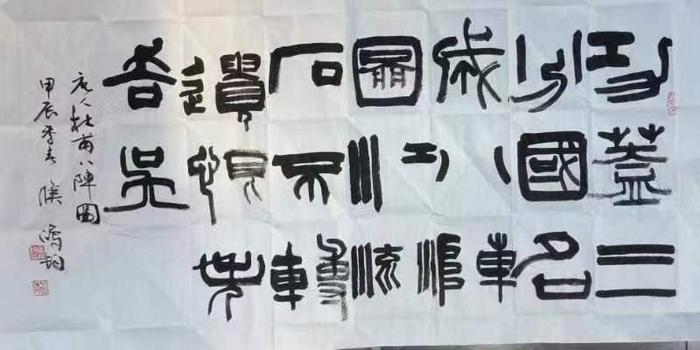 功蓋三
分國名
成八陣
圖江流
石不轉
遺恨失
吞吳
唐人杜甫八陣圖
甲辰季春